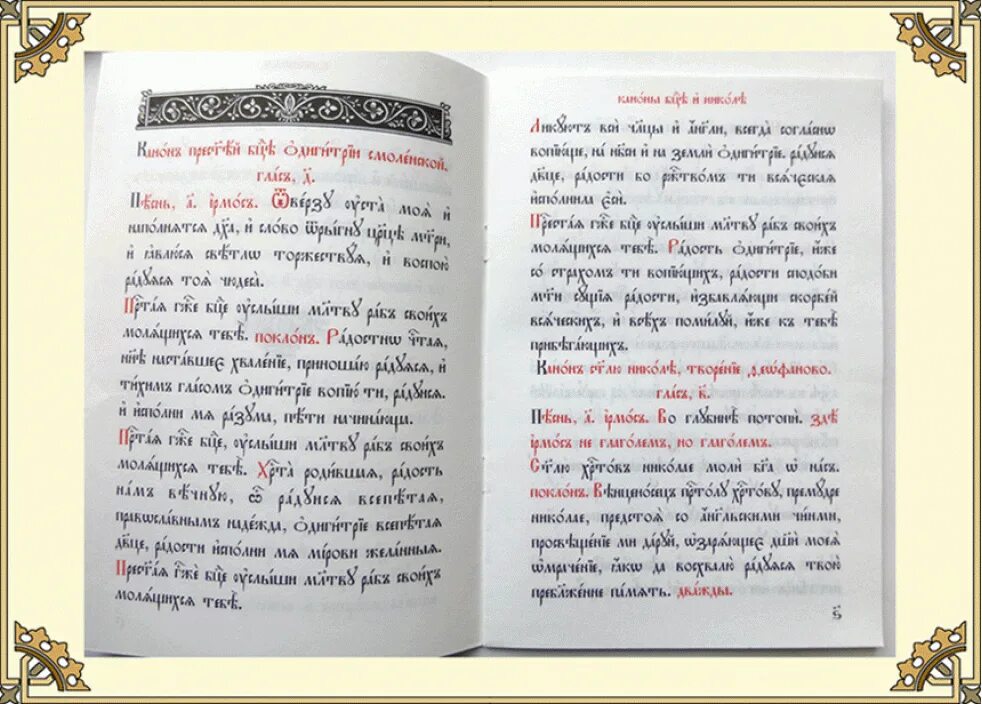 Канѡ́нъ прест҃ѣй бц҃ѣ ѻ҆диги́трїи смоле́нской.
гла́съ, д҃.
Пѣ́снь, а҃. і҆рмо́съ. Ѿве́рзу ѹ҆ста̀ моѧ̀ и҆
напо́лнѧтсѧ дх҃а, и҆ сло́во ѿры́гну цр҃и́це мт҃ри,
и҆ ꙗ҆влю́сѧ свѣ́тлѡ торжеству́ѧ, и҆ воспою̀
ра́дуѧсѧ тоѧ̀ чудеса̀.
Прест҃а́ѧ гж҃е бц҃е ѹ҆слы́ши мл҃тву ра̑бъ свои́хъ
молѧ́щихсѧ тебѣ̀. покло́нъ. Ра́достнѡ чт҃аѧ,
нн҃ѣ наста́вшеє хвале́нїе, приношаю ра́дуѧсѧ, и҆
ти́химъ гла́сомъ ѻ҆диги́трїе вопїю́ ти, ра́дуисѧ.
и҆ испо́лни мѧ ра́зума, пѣ́ти начина́юща.
Прест҃а́ѧ гж҃е бц҃е, ѹ҆слы́ши мл҃тву ра̑бъ свои́хъ
молѧ́щихсѧ тебѣ̀. Хр҃та̀ роди́вшиѧ, ра́дость
на́мъ вѣ́чную, ѽ ра́дуисѧ всепѣ́таѧ,
правосла́внымъ наде́жда, ѻ҆диги́трїе всепѣ́таѧ
дв҃це, ра́дости испо́лни мѧ ми́рови жела́нныѧ.
Прест҃а́ѧ гж҃е бц҃е ѹ҆слы́ши мл҃тву ра̑бъ свои́хъ
молѧ́щихсѧ тебѣ̀.
кано́ны бц҃ѣ и҆ нико́лѣ
Лику́ютъ всѝ чл҃цы и҆ а҆́нг҃ли, всегда̀ согла́снѡ
вопїю́ще, на нб҃сѝ и҆ на землѝ ѻ҆диги́трїе. ра́дуисѧ
дв҃це, ра́дости бо рж҃тво́мъ ти всѧ́ческаѧ
и҆спо́лнила є҆сѝ.
Прест҃а́ѧ гж҃е бц҃е ѹ҆слы́ши мл҃тву ра̑бъ свои́хъ
молѧ́щихсѧ тебѣ̀. Ра́дость ѻ҆диги́трїе, и҆́же
со стра́хомъ ти вопїю́щихъ, ра́дости сподо́би
мт҃и су́щиѧ ра́дости, и҆збавлѧ́ющи скорбе́й
всѧ́ческихъ, и҆ всѣ́хъ поми́луй, и҆́же къ тебѣ̀
прибѣга́ющихъ.
Кано́нъ ст҃лю нико́лѣ, творе́нїе ѳеѡфа́ново.
гла́съ, в҃.
Пѣ́снь, а҃. і҆рмо́съ. Во глубинѣ̀ потопѝ. здѣ̀
і҆рмо́съ не глаго́лемъ, но глаго́лемъ.
Ст҃лю хр҃то́въ нико́лае молѝ бг҃а ѡ҆ на́съ.
покло́нъ. Вѣнцено́сецъ прⷭ҇то́лу хр҃то́ву, прему́дре
нико́лае, предстоѧ̀ со а҆́нг҃льскими чи́нми,
просвѣще́нїе ми да́руй, ѡ҆зарѧ́ющеє дш҃ѝ моеѧ̀
ѡ҆мраче́нїе, ꙗ҆́кѡ да восхвалю̀ ра́дуѧсѧ твою̀
пребл҃же́нне па́мѧть. два́жды.
ѕ҃